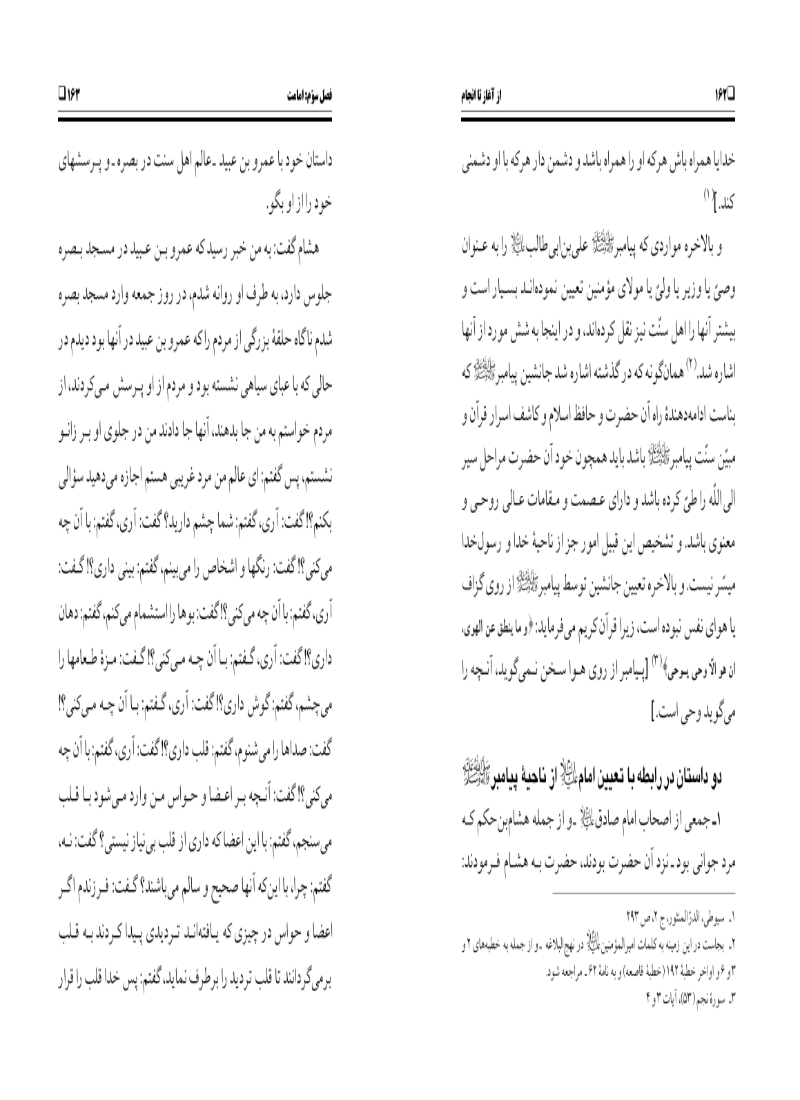 ❏۱۶۲ از آغاز تا انجام
خدایا همراه باش هرکه او را همراه باشد و دشمن دار هرکه با او دشمنی
کند.](۱)
و بالاخره مواردی که پیامبرﷺ علی‌بن‌ابی‌طالب؏ را به عنوان
وصیّ یا وزیر یا ولیّ یا مولای مؤمنین تعیین نموده‌اند بسیار است و
بیشتر آنها را اهل سنّت نیز نقل کرده‌اند، و در اینجا به شش مورد از آنها
اشاره شد.(۲) همان‌گونه که در گذشته اشاره شد جانشین پیامبرﷺ که
بناست ادامه‌دهندهٔ راه آن حضرت و حافظ اسلام و کاشف اسرار قرآن و
مبیّن سنّت پیامبرﷺ باشد باید همچون خود آن حضرت مراحل سیر
الی‌اللّه را طیّ کرده باشد و دارای عصمت و مقامات عالی روحی و
معنوی باشد. و تشخیص این قبیل امور جز از ناحیهٔ خدا و رسول‌خدا
میسّر نیست. و بالاخره تعیین جانشین توسط پیامبرﷺ از روی گزاف
یا هوای نفس نبوده است، زیرا قرآن کریم می‌فرماید: ﴿و ما ینطق عن الهوی،
ان هو الاّ وحی یوحی﴾(۳) [پیامبر از روی هوا سخن نمی‌گوید، آنچه را
می‌گوید وحی است.]
دو داستان در رابطه با تعیین امام؏ از ناحیهٔ پیامبرﷺ
۱ـ جمعی از اصحاب امام صادق؏ ـ و از جمله هشام‌بن‌حکم که
مرد جوانی بود ـ نزد آن حضرت بودند، حضرت به هشام فرمودند:
۱ـ سیوطی، الدرّالمنثور، ج ۲، ص ۲۹۳
۲ـ بجاست در این زمینه به کلمات امیرالمؤمنین؏ در نهج‌البلاغه ـ و از جمله به خطبه‌های ۲ و
۳ و ۶ و اواخر خطبهٔ ۱۹۲ (خطبهٔ قاصعه) و به نامهٔ ۶۲ ـ مراجعه شود.
۳ـ سورهٔ نجم (۵۳)، آیات ۳ و ۴
فصل سوّم: امامت ۱۶۳❏
داستان خود با عمرو بن عبید ـ عالم اهل سنت در بصره ـ و پرسشهای
خود را از او بگو.
هشام گفت: به من خبر رسید که عمرو بن عبید در مسجد بصره
جلوس دارد، به طرف او روانه شدم، در روز جمعه وارد مسجد بصره
شدم ناگاه حلقهٔ بزرگی از مردم را که عمرو بن عبید در آنها بود دیدم در
حالی که با عبای سیاهی نشسته بود و مردم از او پرسش می‌کردند، از
مردم خواستم به من جا بدهند، آنها جا دادند من در جلوی او بر زانو
نشستم، پس گفتم: ای عالم من مرد غریبی هستم اجازه می‌دهید سؤالی
بکنم؟! گفت: آری، گفتم: شما چشم دارید؟ گفت: آری، گفتم: با آن چه
می‌کنی؟! گفت: رنگها و اشخاص را می‌بینم، گفتم: بینی داری؟! گفت:
آری، گفتم: با آن چه می‌کنی؟! گفت: بوها را استشمام می‌کنم، گفتم: دهان
داری؟! گفت: آری، گفتم: با آن چه می‌کنی؟! گفت: مزهٔ طعامها را
می‌چشم، گفتم: گوش داری؟! گفت: آری، گفتم: با آن چه می‌کنی؟!
گفت: صداها را می‌شنوم، گفتم: قلب داری؟! گفت: آری، گفتم: با آن چه
می‌کنی؟! گفت: آنچه بر اعضا و حواس من وارد می‌شود با قلب
می‌سنجم، گفتم: با این اعضا که داری از قلب بی‌نیاز نیستی؟ گفت: نه،
گفتم: چرا، با این‌که آنها صحیح و سالم می‌باشند؟ گفت: فرزندم اگر
اعضا و حواس در چیزی که یافته‌اند تردیدی پیدا کردند به قلب
برمی‌گردانند تا قلب تردید را برطرف نماید، گفتم: پس خدا قلب را قرار